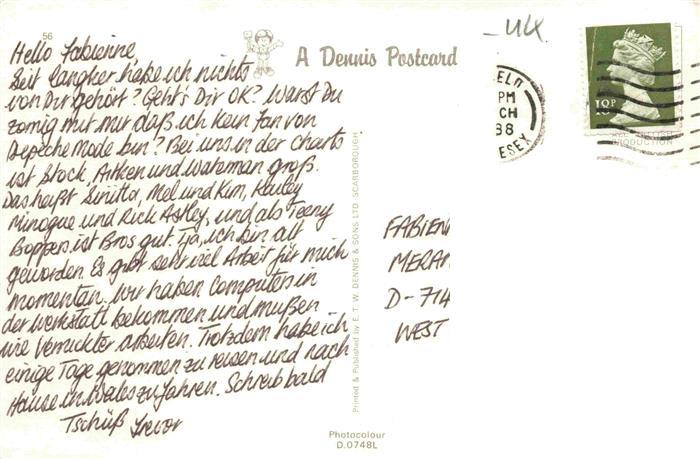 56
A Dennis Postcard
Hello Fabienne,
Seit langker habe ich nichts
von Dir gehört? Geht's Dir OK? Warst Du
zornig mit mir daß ich kein Fan von
Depeche Mode bin? Bei uns in der Charts
ist Stock, Aitken und Waterman groß.
Das heißt Sinitta, Mel und Kim, Kayley
Minogue und Rick Astley, und als Teeny
Boppers ist Bros gut. Tja, ich bin alt
geworden. Es gibt sehr viel Arbeit für mich
momentan. Wir haben Computers in
der Werkstatt bekommen und mußen
wie Verruckter arbeiten. Trotzdem habe ich
einige Tage genommen zu reisen und nach
Hause in Wales zu fahren. Schreib bald
Tschüß Trevor
Printed & Published by E. T. W. DENNIS & SONS LTD. SCARBOROUGH.
Photocolour
D.0748L
UK.
ELD
PM
CH
88
ESEX
18P
FABIEN
MERAN
D-714
WEST